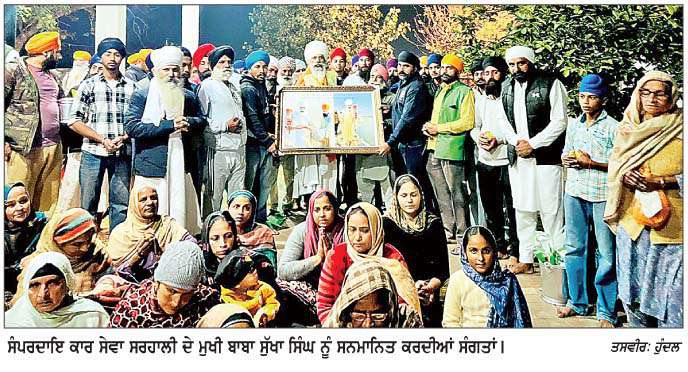 ਸੰਪਰਦਾਇ ਕਾਰ ਸੇਵਾ ਸਰਹਾਲੀ ਦੇ ਮੁਖੀ ਬਾਬਾ ਸੁੱਖਾ ਸਿੰਘ ਨੂੰ ਸਨਮਾਨਿਤ ਕਰਦੀਆਂ ਸੰਗਤਾਂ। ਤਸਵੀਰ: ਹੁੰਦਲ